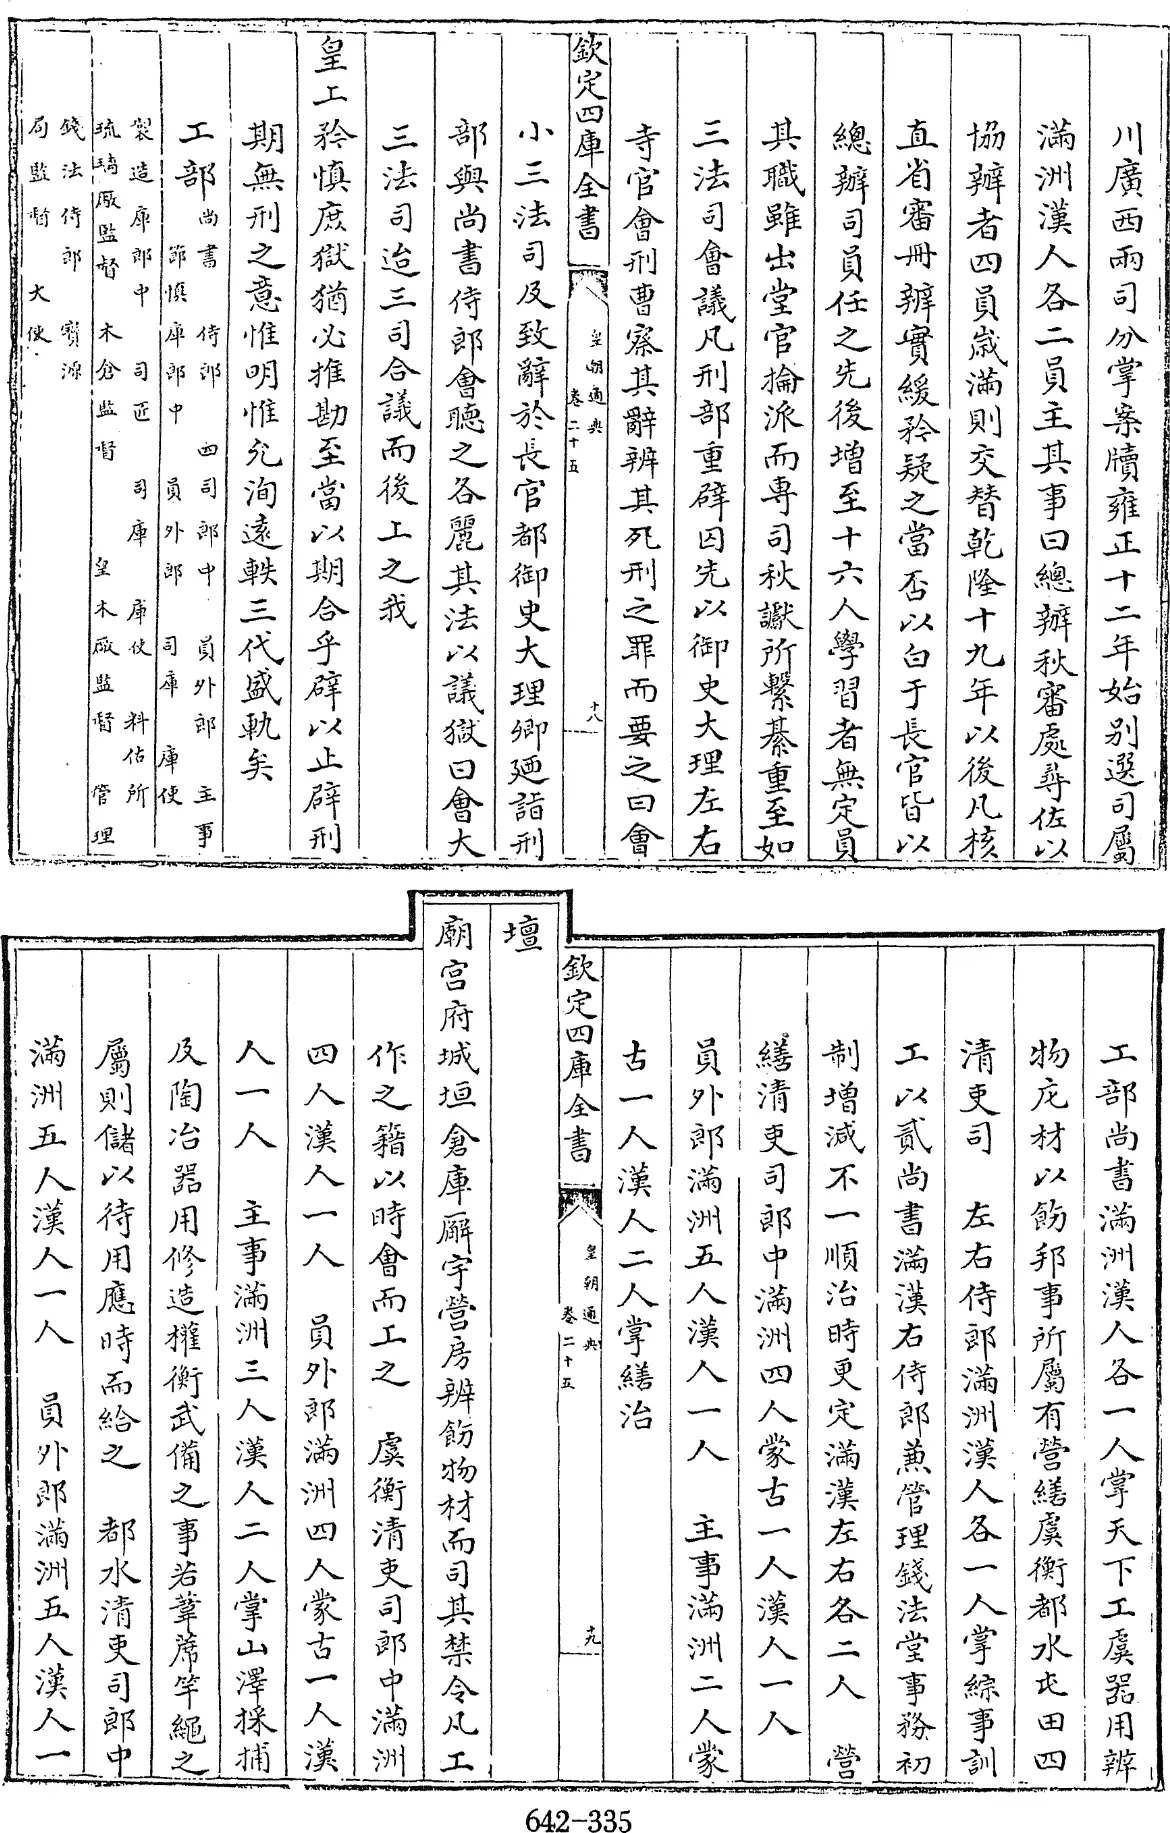 川廣西兩司分掌案牘雍正十二年始别選司屬
滿洲漢人各二員主其事曰總辦秋審處尋佐以
協辦者四員嵗滿則交替乾隆十九年以後凡核
直省審冊辦實緩矜疑之當否以白于長官皆以
總辦司員任之先後增至十六人學習者無定員
其職雖出堂官掄派而専司秋讞所繫綦重至如
三法司會議凡刑部重辟囚先以御史大理左右
寺官會刑曹察其辭辨其死刑之罪而要之曰會
欽定四庫全書
皇朝通典
卷二十五
十八
小三法司及致辭於長官都御史大理卿廼詣刑
部與尚書侍郎會聽之各麗其法以議獄曰會大
三法司迨三司合議而後上之我
皇上矜慎庶獄猶必推勘至當以期合乎辟以止辟刑
期無刑之意惟明惟允洵遠軼三代盛軌矣
工部
尚書 侍郎 四司郎中 員外郎 主事
節慎庫郎中 員外郎 司庫 庫使
製造庫郎中 司匠 司庫 庫使 料估所
琉璃厰監督 木倉監督 皇木厰監督 管理
錢法侍郎 寳源
局監督 大使
工部尚書滿洲漢人各一人掌天下工虞器用辨
物庀材以飭邦事所屬有營繕虞衡都水屯田四
清吏司 左右侍郎滿洲漢人各一人掌綜事訓
工以貳尚書滿漢右侍郎兼管理錢法堂事務初
制增減不一順治時更定滿漢左右各二人 營
繕清吏司郎中滿洲四人蒙古一人漢人一人
員外郎滿洲五人漢人一人 主事滿洲二人蒙
古一人漢人二人掌繕治
欽定四庫全書
皇朝通典
卷二十五
十九
壇
廟宮府城垣倉庫廨宇營房辨飭物材而司其禁令凡工
作之籍以時會而工之 虞衡清吏司郎中滿洲
四人漢人一人 員外郎滿洲四人蒙古一人漢
人一人 主事滿洲三人漢人二人掌山澤採捕
及陶冶器用修造權衡武備之事若葦蓆竿繩之
屬則儲以待用應時而給之 都水清吏司郎中
滿洲五人漢人一人 員外郎滿洲五人漢人一
642-335